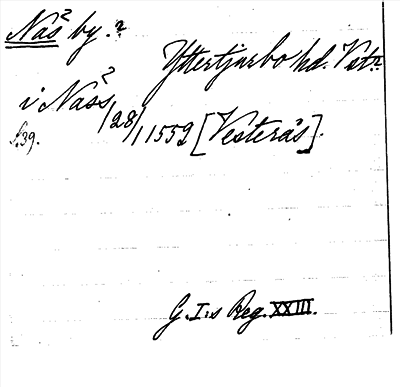 Nås² by.?
Yttertjurbo hd. Vstm.
i Nåss² 28/1 1559 [Vesterås].
s. 39.
G. I:s Reg. XXIII.